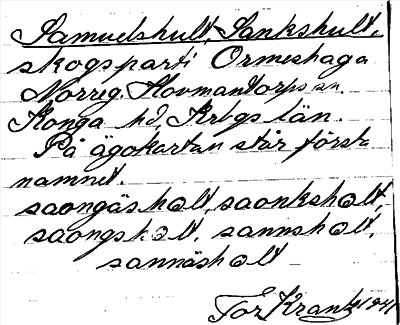 Samuelshult, Sankshult,
skogsparti Ormeshaga
Norreg. Hovmantorps sn.
Konga hd, Krbgs län.
På ägokartan står första
namnet.
saongäshəlt, saonkshəlt,
saongshəlt, sannshəlt,
sannäshəlt
Tor Krantz 1941